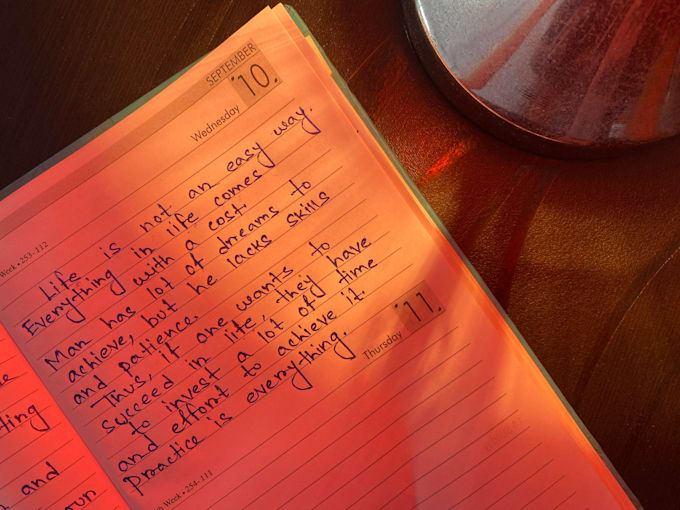 SEPTEMBER
10
Wednesday
Week • 253-112
Life is not an easy way.
Everything in life comes
with a cost.
Man has lot of dreams to
achieve, but he lacks skills
and patience.
Thus, if one wants to
succeed in life, they have
to invest a lot of time
and effort to achieve it.
Practice is everything.
11
Thursday
Week • 254-111
ting
and